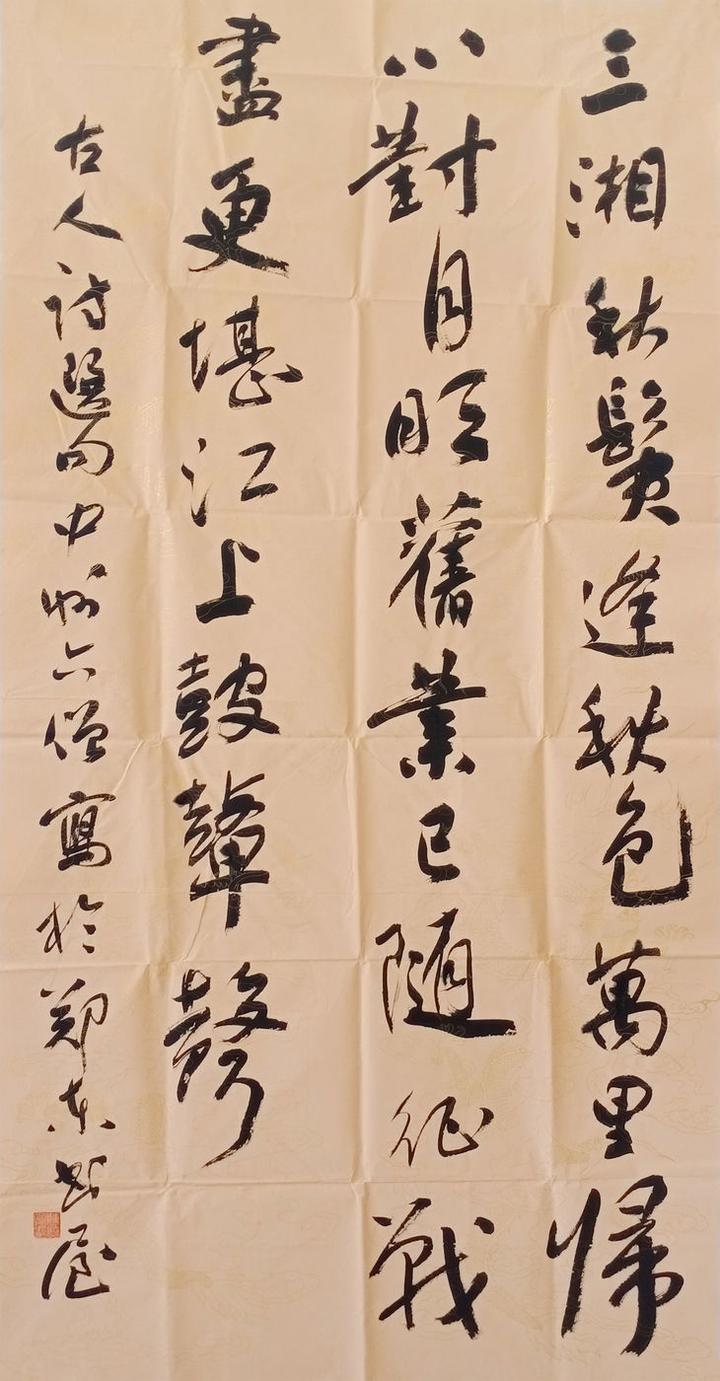 三湘秋鬢逢秋色萬里歸
心對月明舊業已隨征戰
盡更堪江上鼓鼙聲
古人詩選句中州六僧寫於鄭東書屋